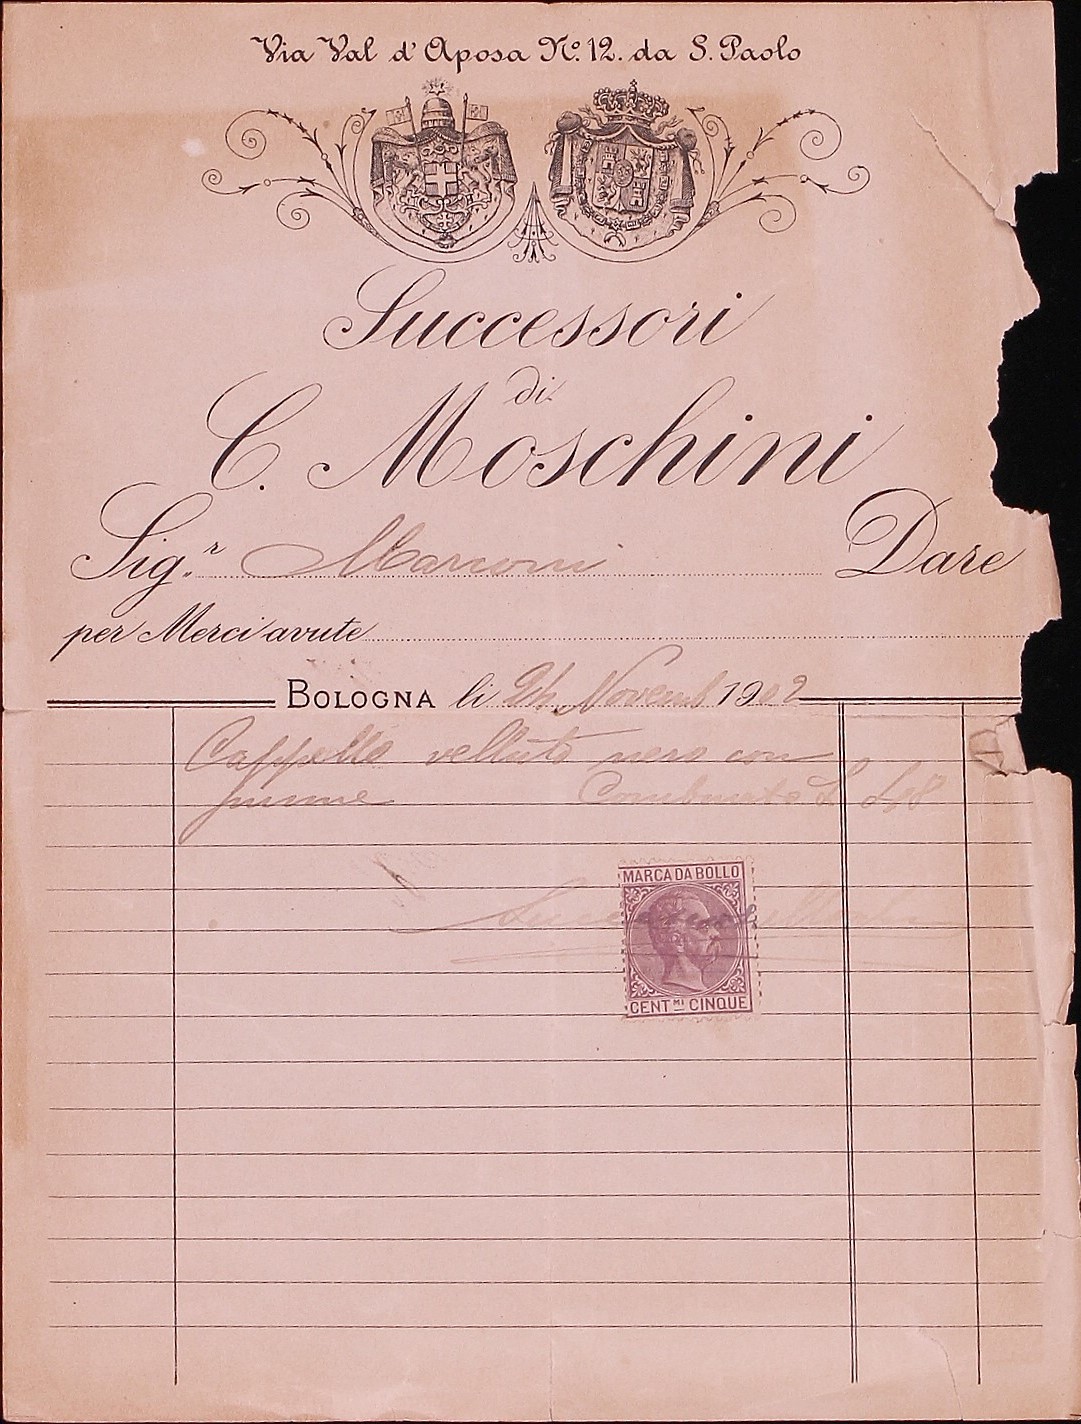 Via Val d'Aposa No. 12. da S. Paolo
Successori
di
C. Moschini
Sig.r Marconi Dare
per Merci avute
BOLOGNA li 24 Novemb 1902
Cappello velluto nero con
piume
MARCA DA BOLLO
CENT.MI CINQUE